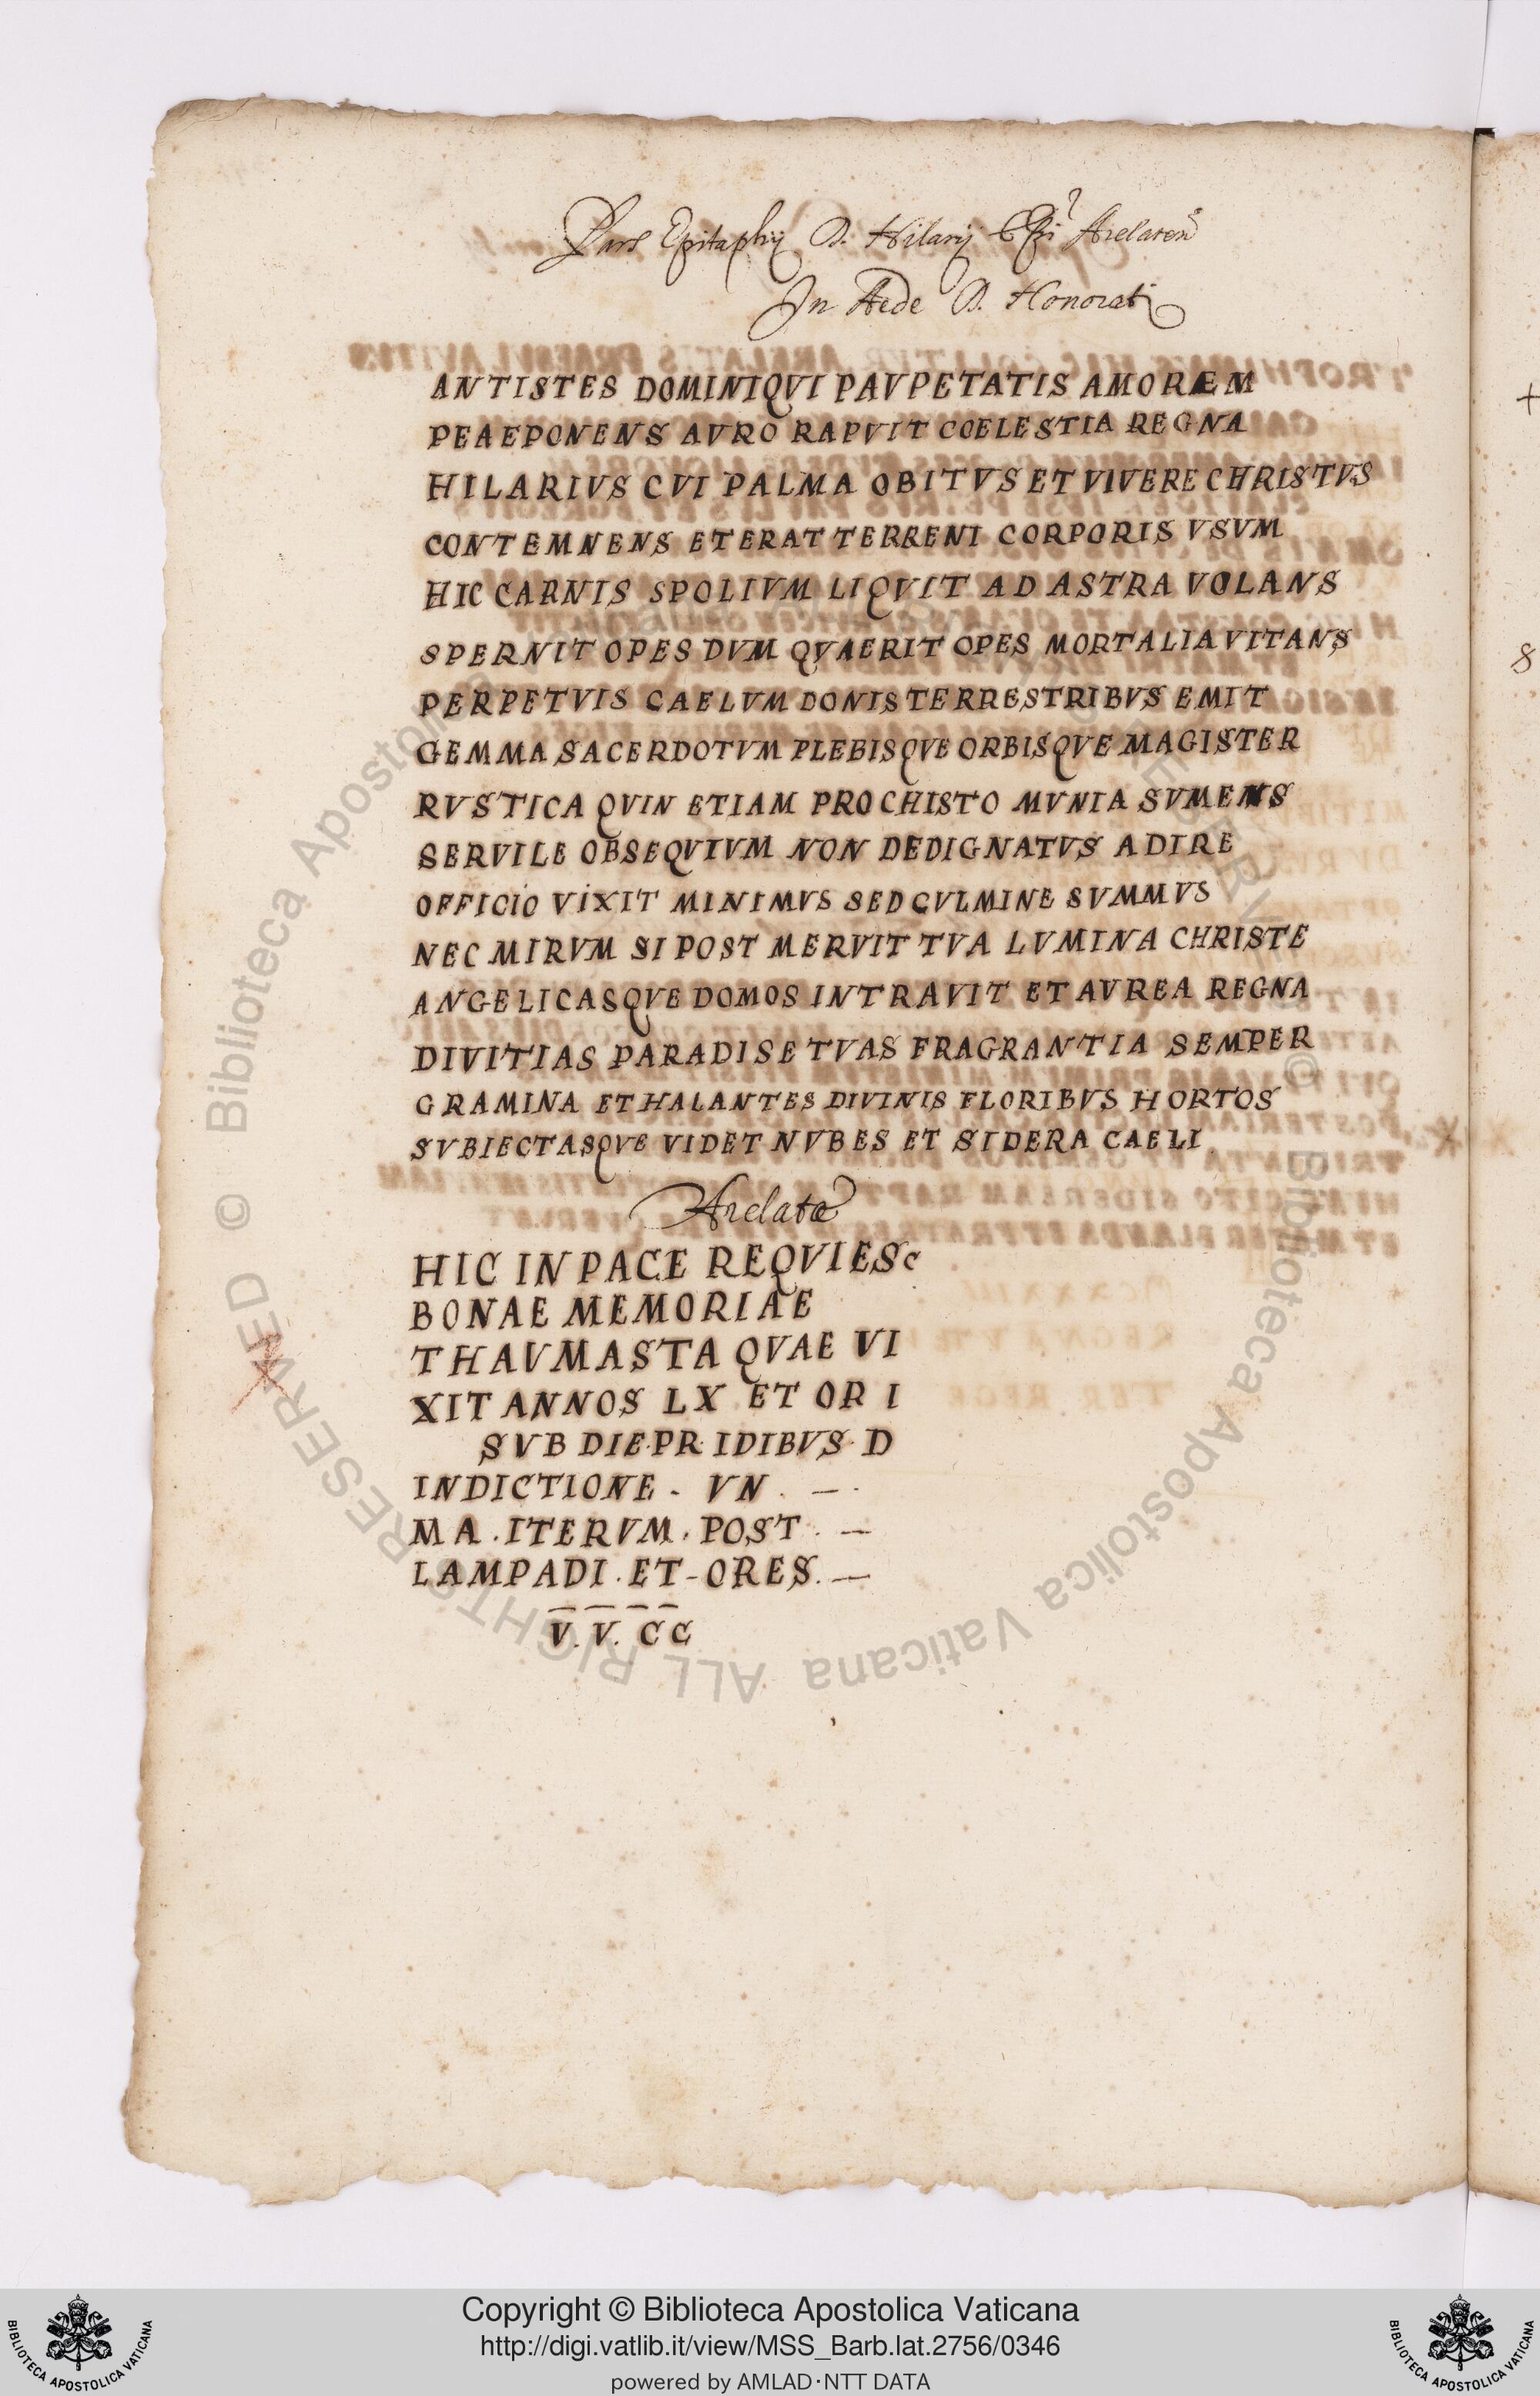 Pars Epitaphij D. Hilarij Epi Arelaten
In Aede D. Honorati
ANTISTES DOMINIQVI PAVPETATIS AMORÆM
PEAEPONENS AVRO RAPVIT COELESTIA REGNA
HILARIVS CVI PALMA OBITVS ET VIVERE CHRISTVS
CONTEMNENS ETERAT TERRENI CORPORIS VSVM
HIC CARNIS SPOLIVM LIQVIT AD ASTRA VOLANS
SPERNIT OPES DVM QVAERIT OPES MORTALIA VITANS
PERPETVIS CAELVM DONIS TERRESTRIBVS EMIT
GEMMA SACERDOTVM PLEBISQVE ORBISQVE MAGISTER
RVSTICA QVIN ETIAM PRO CHISTO MVNIA SVMENS
SERVILE OBSEQVIVM NON DEDIGNATVS ADIRE
OFFICIO VIXIT MINIMVS SED CVLMINE SVMMVS
NEC MIRVM SI POST MERVIT TVA LVMINA CHRISTE
ANGELICASQVE DOMOS INTRAVIT ET AVREA REGNA
DIVITIAS PARADISE TVAS FRAGRANTIA SEMPER
GRAMINA ET HALANTES DIVINIS FLORIBVS HORTOS
SVBIECTASQVE VIDET NVBES ET SIDERA CAELI
Arelatæ
HIC IN PACE REQVIESC
BONAE MEMORIAE
THAVMASTA QVAE VI
XIT ANNOS LX ET OR I
SVB DIE·PR·IDIBVS·D
INDICTIONE - VN . — .
MA . ITERVM . POST . —
LAMPADI . ET - ORES. —
V. V. C C
Copyright © Biblioteca Apostolica Vaticana
http://digi.vatlib.it/view/MSS_Barb.lat.2756/0346
powered by AMLAD·NTT DATA